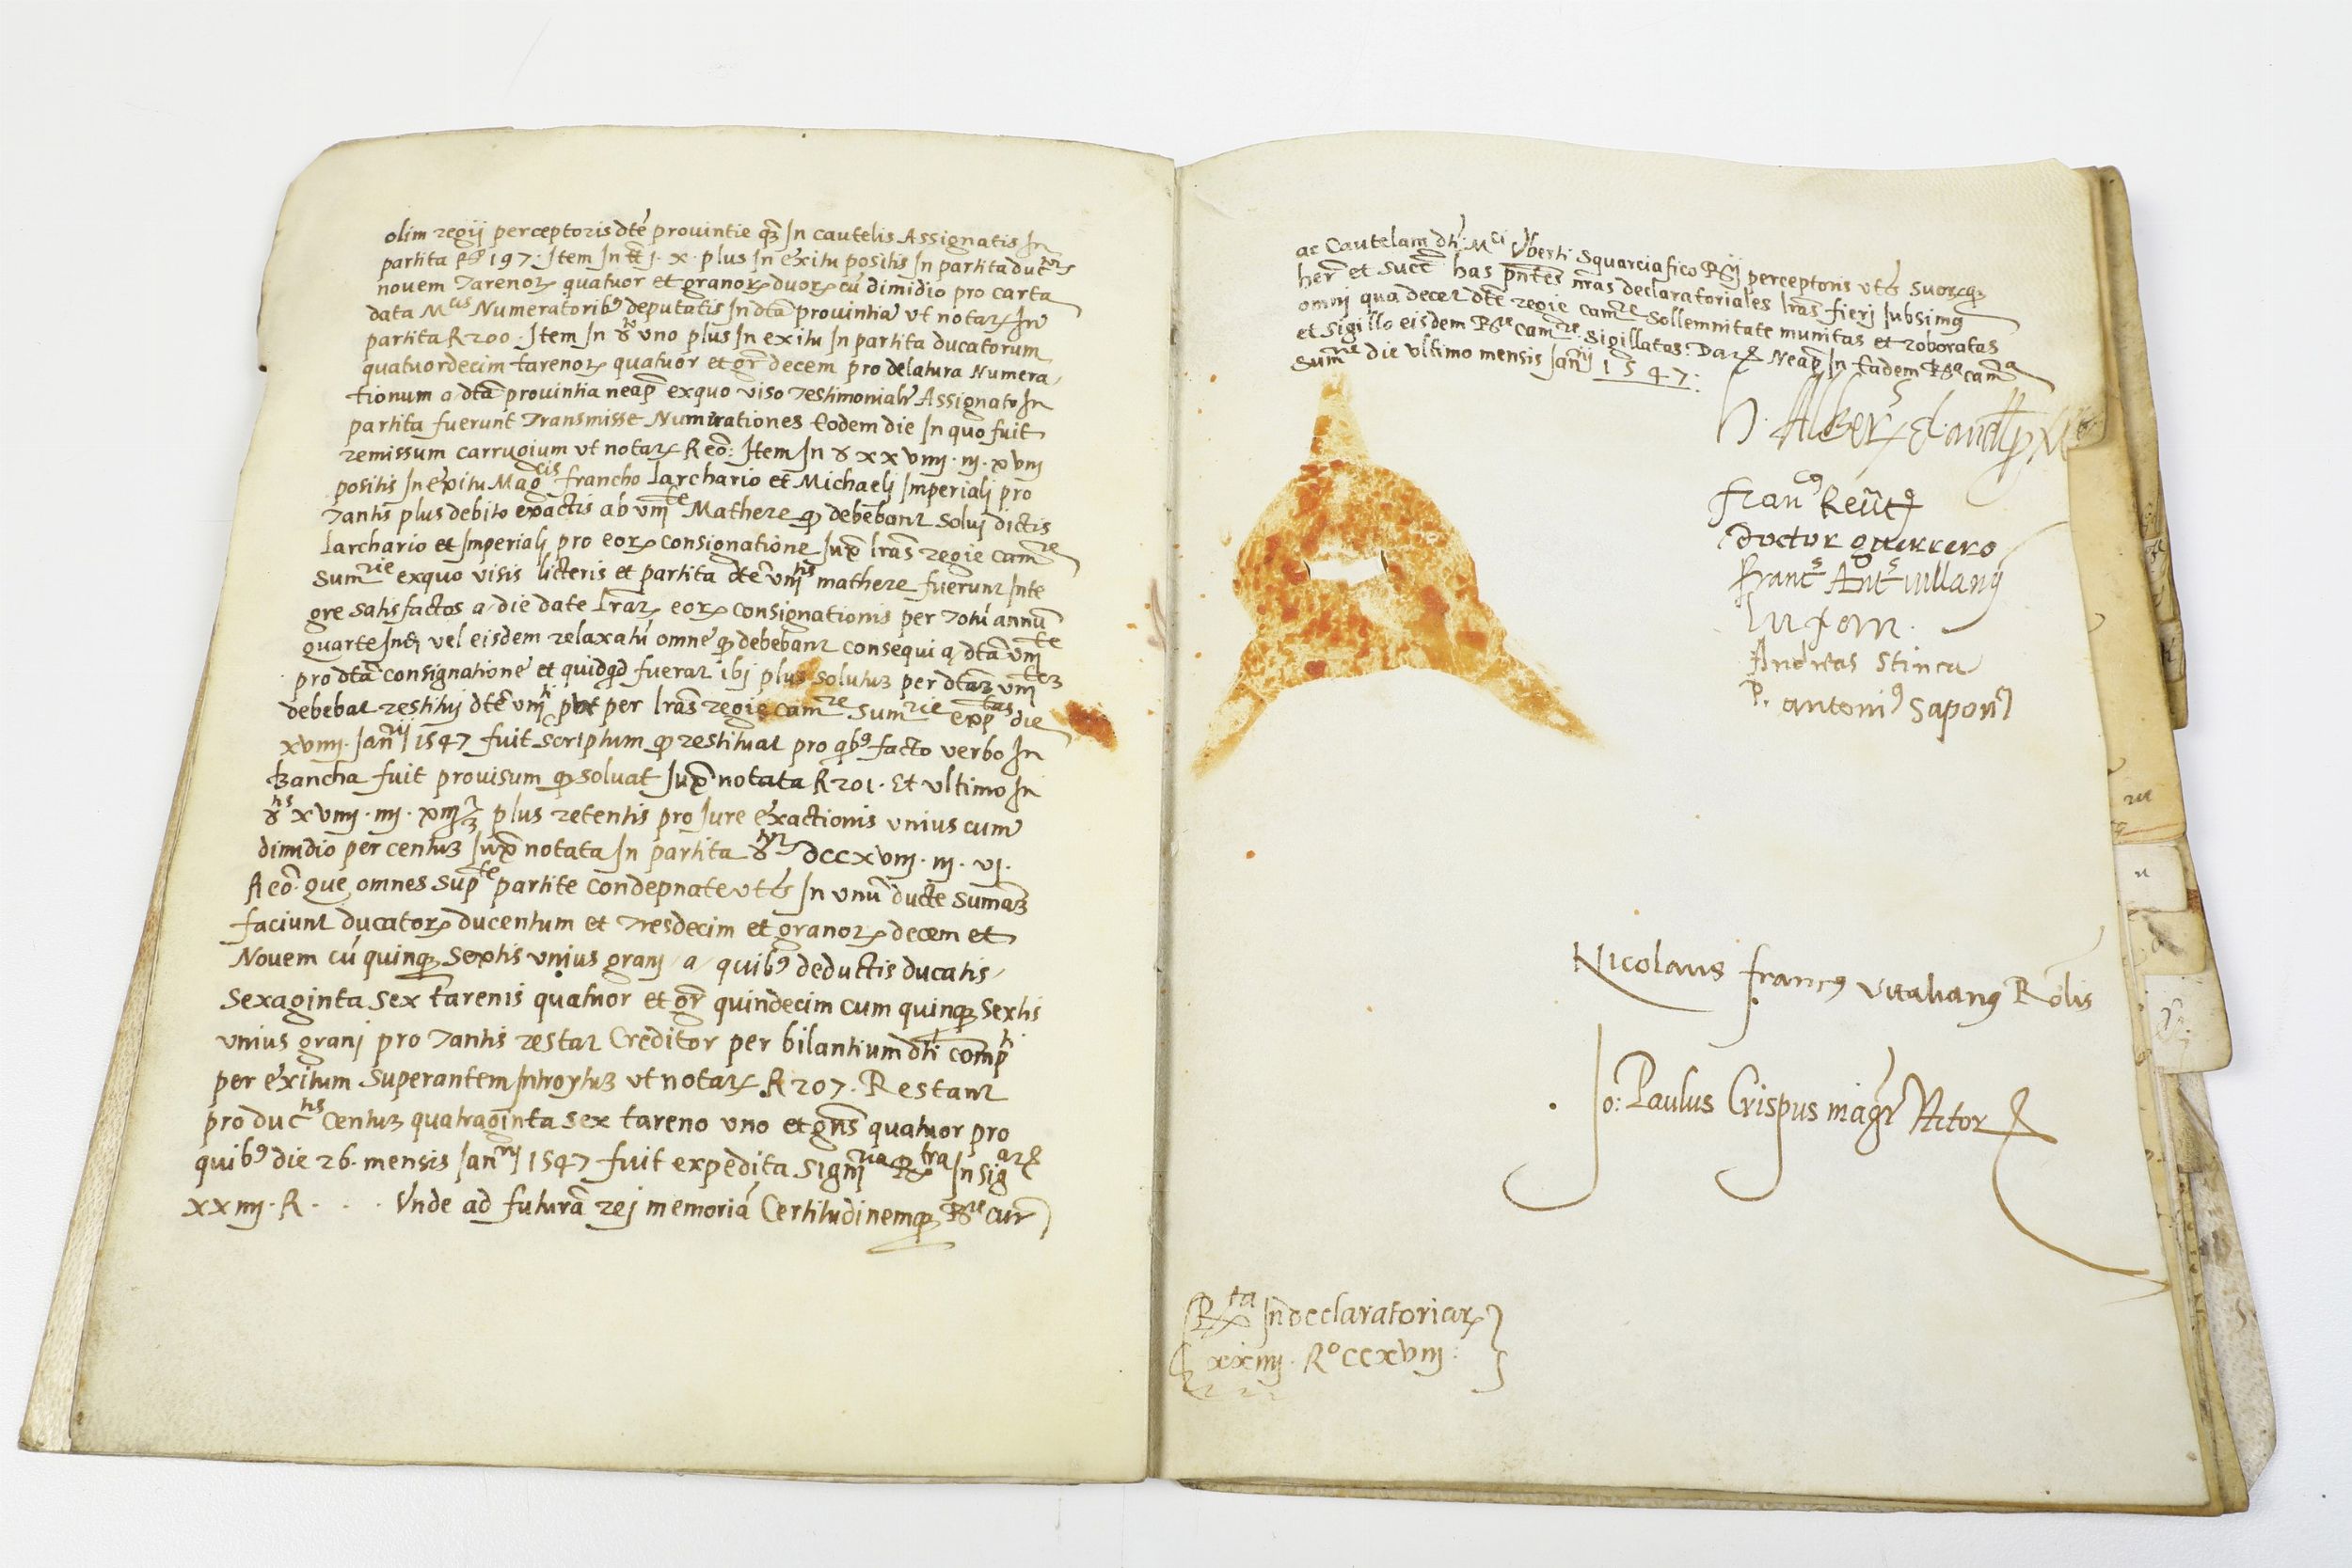 olim regij perceptoris dté prouintie q3 In cautelis Assignatis In
partita 197. Item In j. x. plus In exitu positis In partita
nouem Tarenor quatuor et granor duor cú dimidio pro carta
data M.cis Numeratorib9 deputatis In dtā prouintia vt notar In
partita R 200. Item In vno plus In exitu In partita ducatorum
quatuordecim tarenor quatuor et gr̄ decem pro delatura Numera,
tionum a dtā prouintia neap̄ exquo viso Testimoniali Assignato In
partita fuerunt Transmisse Numerationes Eodem die In quo fuit
remissum carrugium vt notar Reō: Item In xxviiij. iij. xviij
positis In exitu Mag.cis francho Larchario et Michaelj Imperialj pro
Tantis plus debito exactis ab vni.te Mathere q debebant Solui dictis
Larchario et Imperialj pro eor consignatione Iux l̄ras regie cam.re
Sum.rie exquo visis licteris et partita dte vni.tis mathere fuerunt Inte
gre Satisfactos a die date l̄rar eor consignationis per Totú annū
quarte Ind vel eisdem relaxatú omne q debebant consequi a dtā vni.te
pro dtā consignatione et quidqd fuerat ibj plus Solutu3 per dtā3 vni.te3
debebat restituj dte vni.ti per l̄ras regie cam.re Sum.rie exp.tas die
xviiij. Ian.rij 1547 fuit Scriptum q restituat pro qb9 facto verbo In
bancha fuit prouisum q Soluat Iux notata R 201. Et vltimo In
xviiij. iiij. plus retentis pro Iure exactionis vnius cum
dimidio per centu3 Iux notata In partita dccxviiij. iij. vj.
Reō. que omnes Sup.te partite condepnate In vnū ducte Sumā3
faciunt ducator ducentum et Tresdecim et granor decem et
Nouem cú quinq3 Sextis vnius granj, a, quib9 deductis ducatis,
Sexaginta Sex tarenis quatuor et gr̄ quindecim cum quinq3 Sextis
vnius granj pro Tantis restat Creditor per bilantium dti comp.ti
per exitum Superantem Introytu3 vt notar R 207. Restant
pro duc.tis Centu3 quatraginta Sex tareno vno et gnīs quatuor pro
quib9 die 26. mensis Ian.rij 1547 fuit expedita In
xxiiij. R. . . . Vnde ad futurā rej memoriā Certitudinemq3 R.re cur̄
ac Cautelam dti M.ci Vberti Squarciafico R.ij perceptoris Suorq3
her̄ et Succ̄ has pn̄tes nr̄as declaratoriales l̄ras fierj Iussimus
omnj qua decet dtē regie cam.re Sollemnitate munitas et roboratas
et Sigillo eisdem R.e cam.re Sigillatas. Dat Neap̄ In Eadem R.a cam.a
Sum.rie die vltimo mensis Ian.rij 1547:
Fran.cus
Doctor guerrero
Franc.s Ant.s villanus
Andreas Stinca
P. antoni9 Sapon
Nicolaus franc9 vitalian9 Rōlis
Jo: Paulus Crispus maḡr Actor
R.ta In declaratoriar
xxiiij. R.o ccxviij: